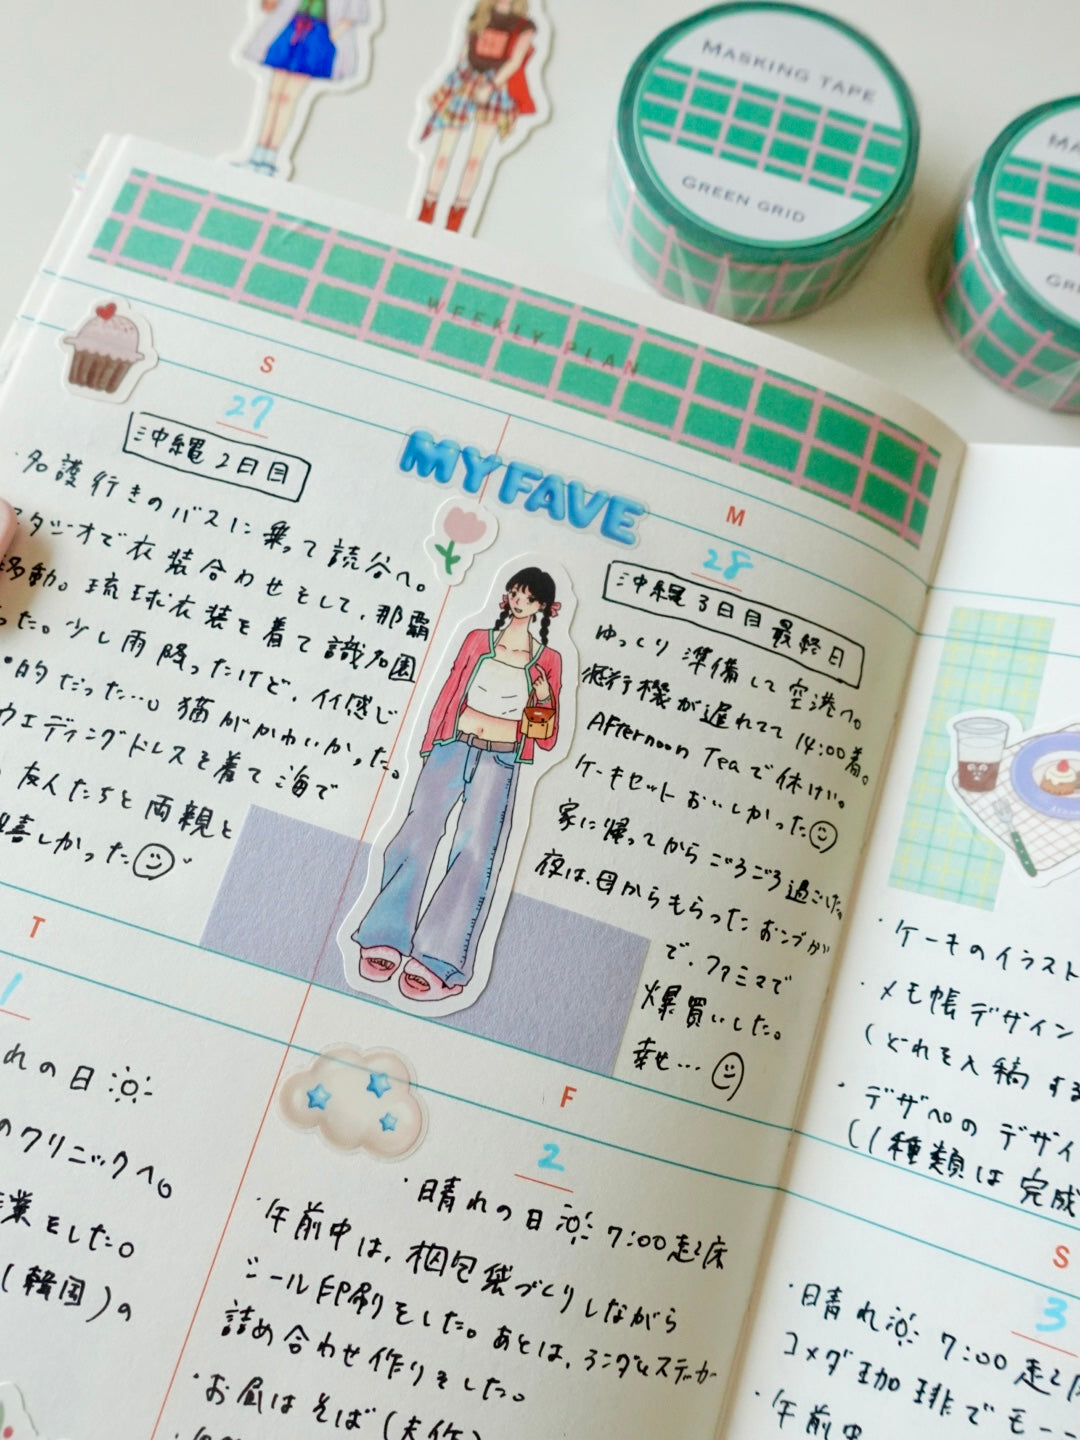 MASKING TAPE
GREEN GRID
WEEKLY PLAN
S
27
沖縄2日目
・名護行きのバスに乗って読谷へ。
スタジオで衣装合わせをして、那覇
移動。琉球衣装を着て識名園
った。少し雨降ったけど、イイ感じ
的だった…。猫がかわいかった。
ウエディングドレスを着て海で
友人たちと両親と
嬉しかった
MY FAVE
M
28
沖縄3日目最終日
ゆっくり準備して空港へ。
飛行機が遅れてて14:00着。
Afternoon Teaで休けい。
ケーキセットおいしかった
家に帰ってからごろごろ過ごした。
夜は、母からもらったおこづかい
で、ファミマで
爆買いした。
幸せ…
T
1
れの日
のクリニックへ。
業をした。
(韓国)の
F
2
・晴れの日 7:00起床
・午前中は、梱包袋づくりしながら
シール印刷をした。あとは、ランダムステッカー
詰め合わせ作りをした。
・お昼はそば(夫作)
・ケーキのイラスト
・メモ帳デザイン
(どれを入稿する
・デザペのデザイ
(1種類は完成
S
3
・晴れ 7:00起床
コメダ珈琲でモー
・午前中